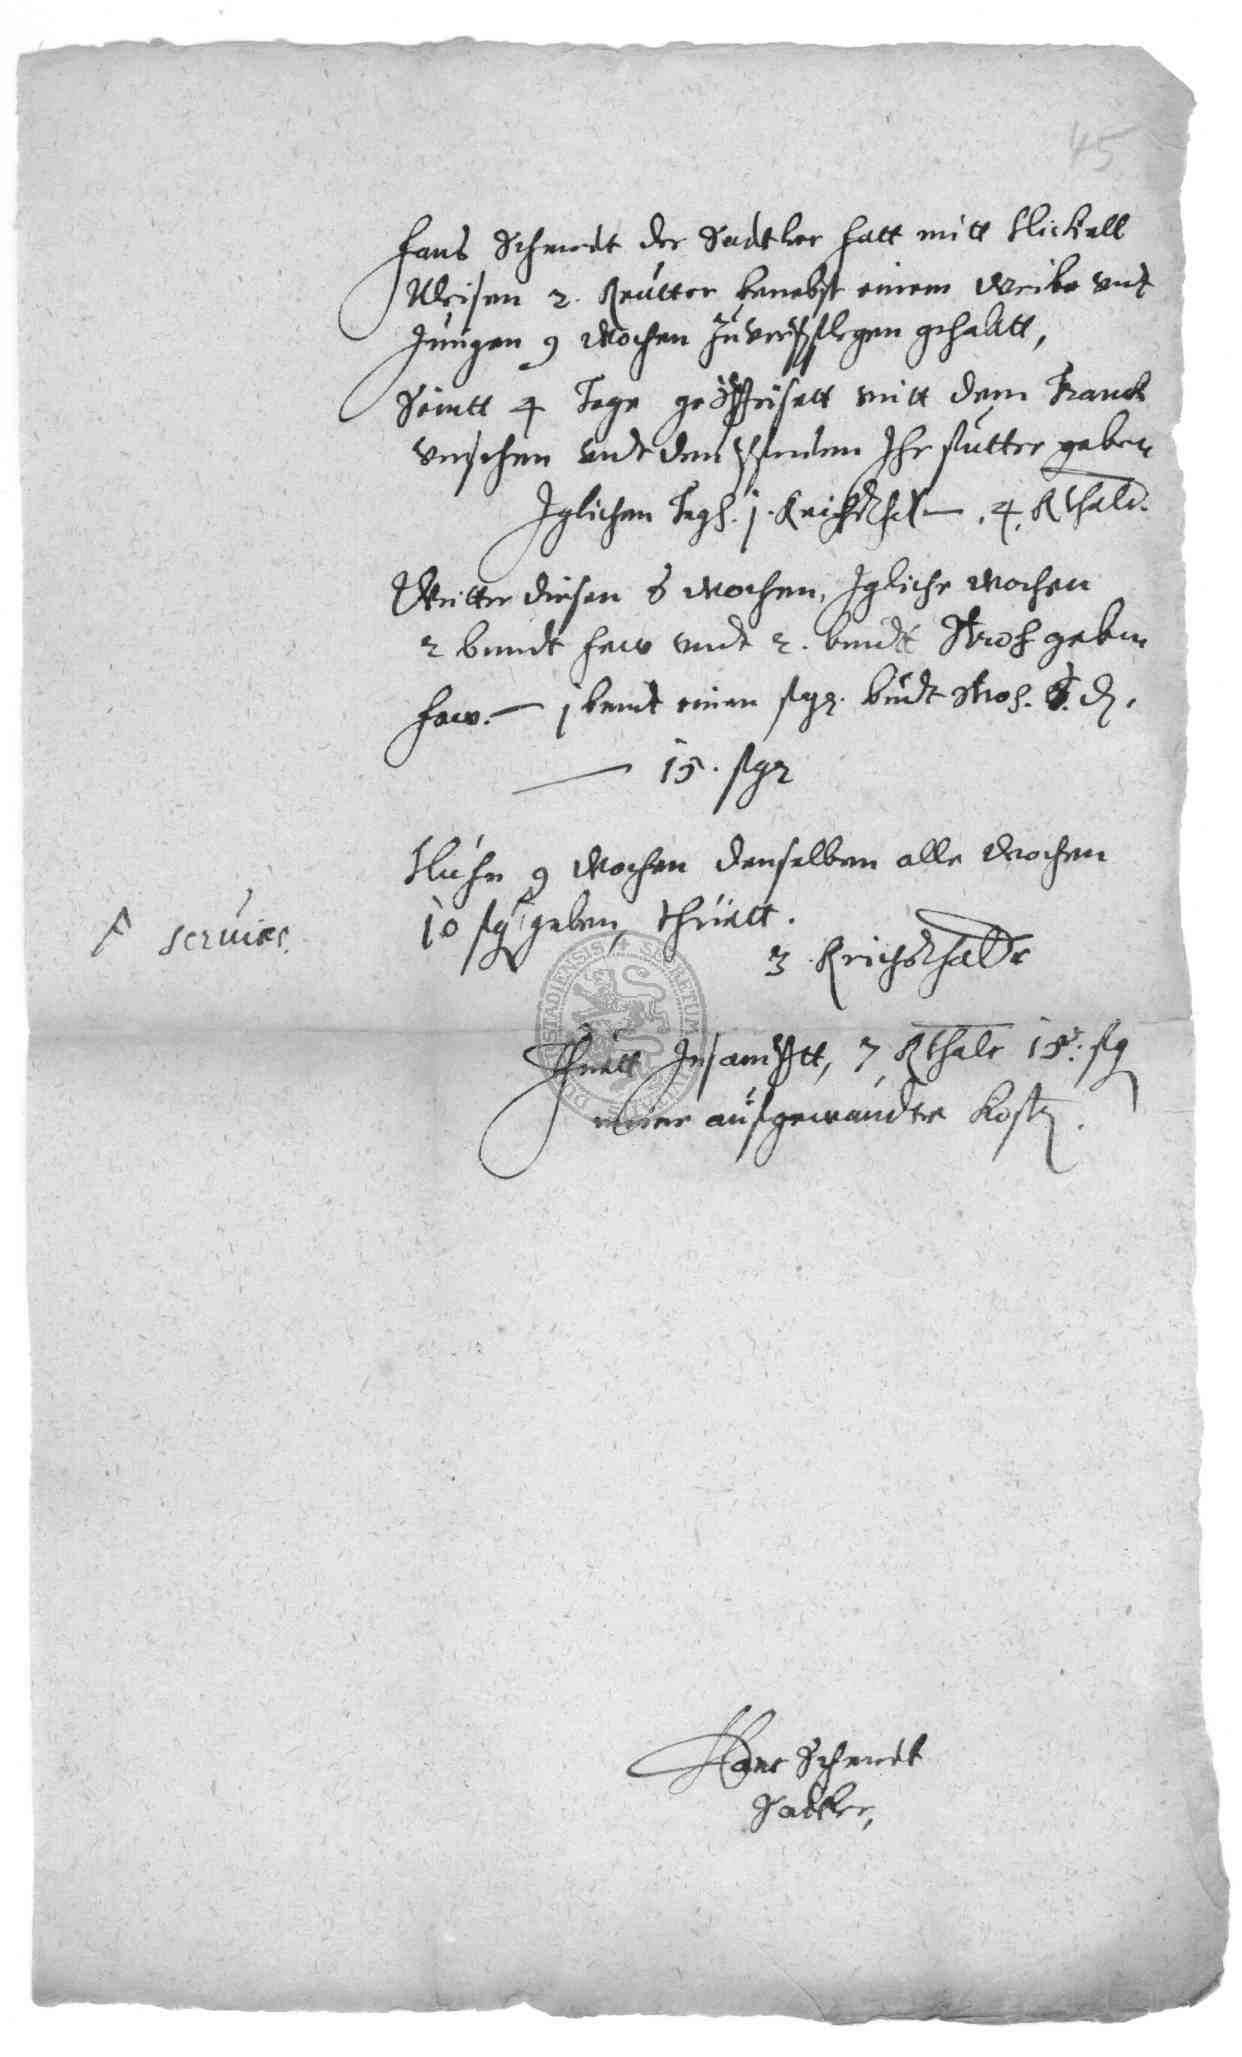 45
Hans Schmidt der Sadtler hatt mitt Nickell
Weisen 2. Reütter benebst einem Weibe vnd
Jungen 9 Wochen zuuerpflegen gehabtt,
Seintt 4 Tage gespeisett mitt dem Tranck
versehen vndt den Pferden Ihr futter geben
Iglichen Tagh. j. Reichsthal — . 4. Rthaler.
Weitter diesen 8 wochen, Igliche wochen
2 bundt haw vndt 2. bundt Stroh geben
haw. — j bundt einen sgr. bundt stroh. 6. d.
— 15. sgr
9 Wochen denselben alle Wochen
10 sg geben, thuett.
servies.
3 Reichsthaler
Thuett Insambtt, 7 Rthaler 15. sg
meine aufgewandte Kosten.
Hans Schmidt
Sadtler,